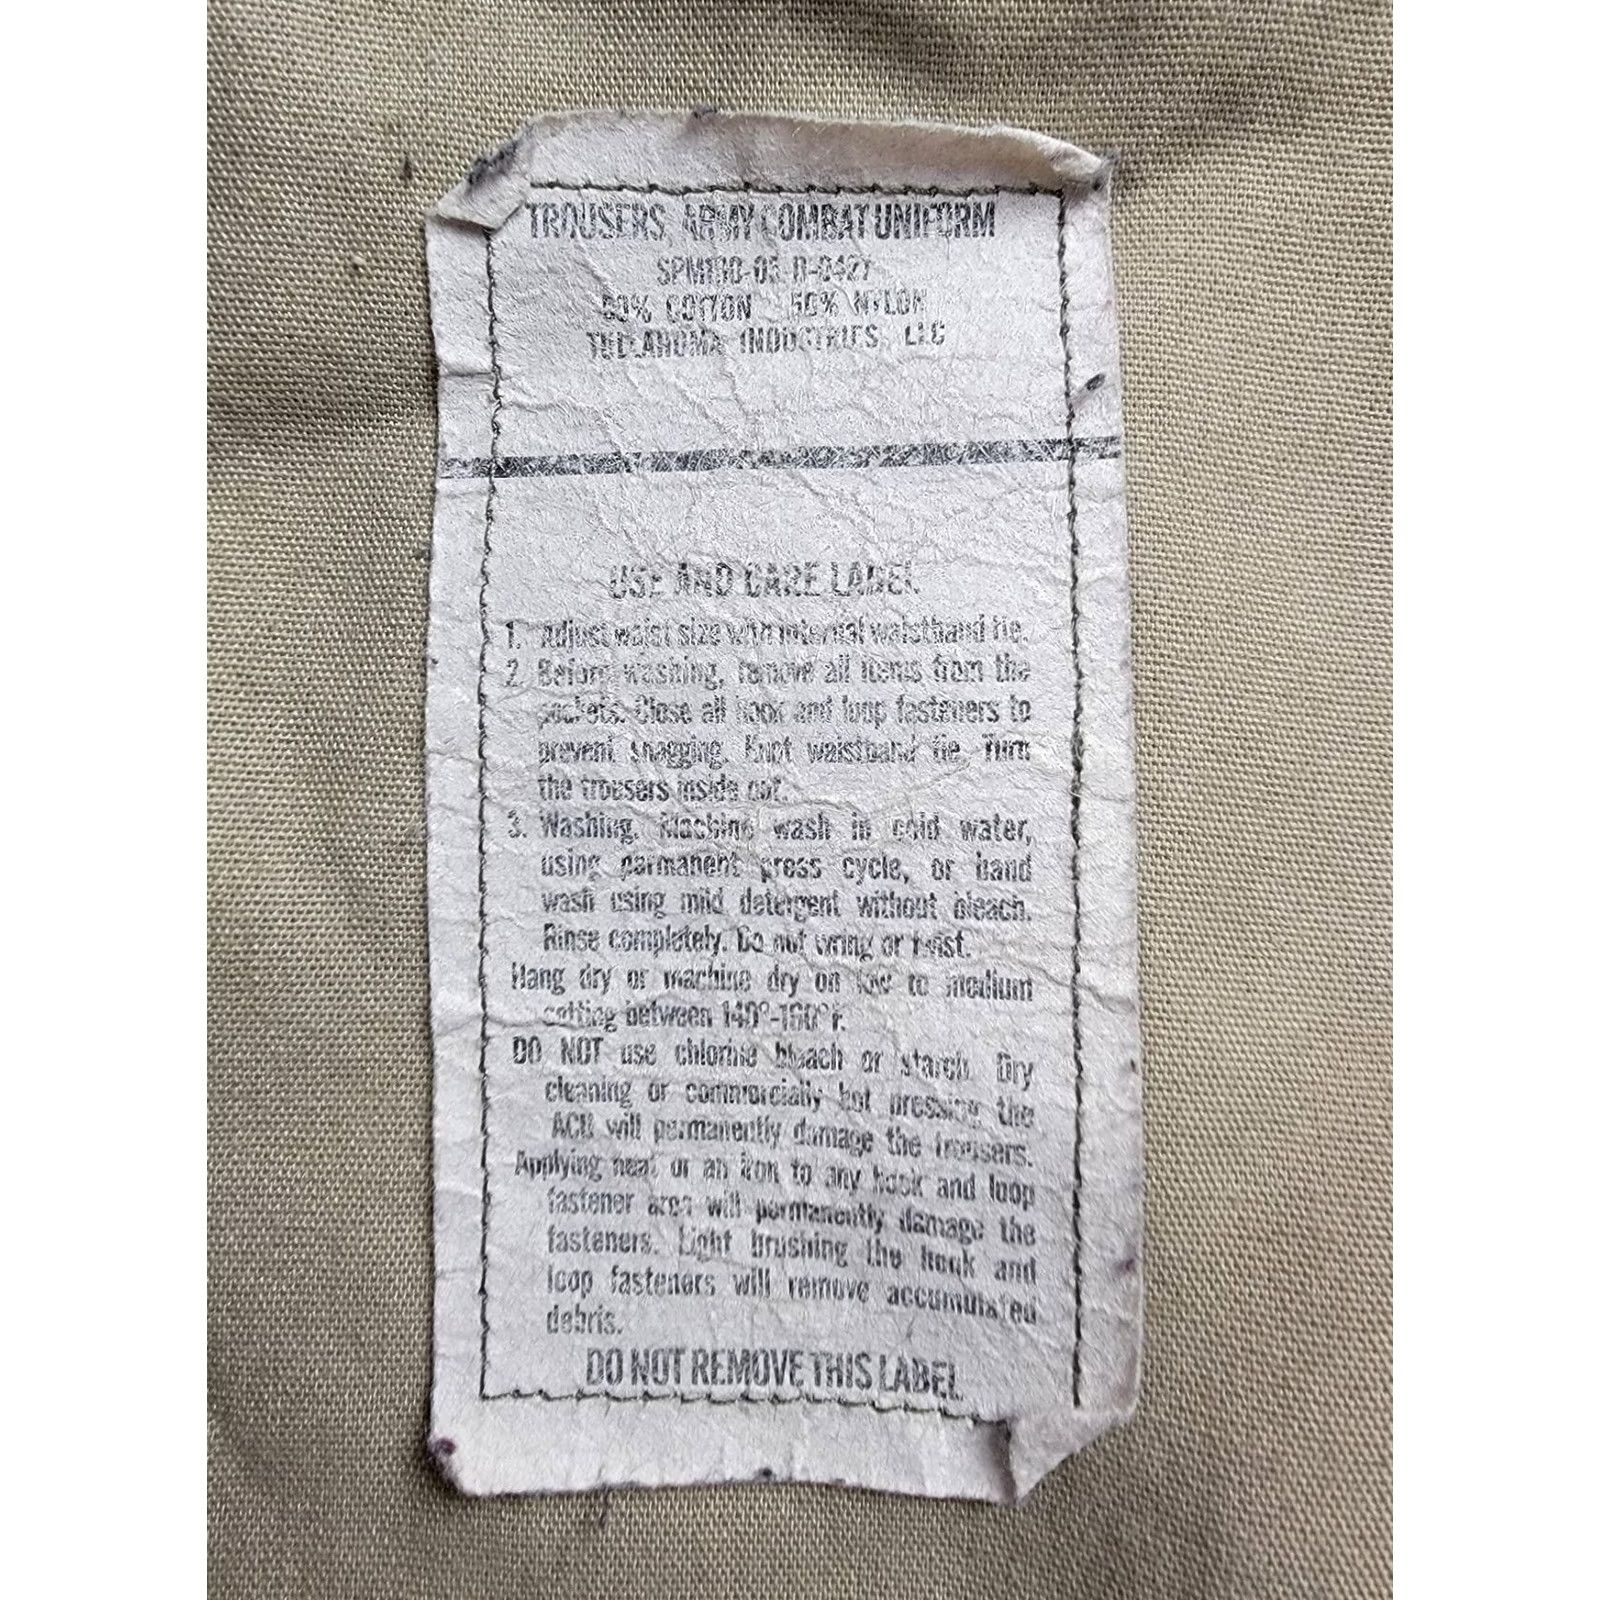 TROUSERS, ARMY COMBAT UNIFORM
50% COTTON 50% NYLON
TULLAHOMA INDUSTRIES, LLC
USE AND CARE LABEL
1. Adjust waist size with internal waistband tie.
2. Before washing, remove all items from the
pockets. Close all hook and loop fasteners to
prevent snagging. Knot waistband tie. Turn
the trousers inside out.
3. Washing. Machine wash in cold water,
using permanent press cycle, or hand
wash using mild detergent without bleach.
Rinse completely. Do not wring or twist.
Hang dry or machine dry on low to medium
setting between 140°-160°F.
DO NOT use chlorine bleach or starch. Dry
cleaning or commercially hot pressing the
ACU will permanently damage the trousers.
Applying heat or an iron to any hook and loop
fastener area will permanently damage the
fasteners. Light brushing the hook and
loop fasteners will remove accumulated
debris.
DO NOT REMOVE THIS LABEL